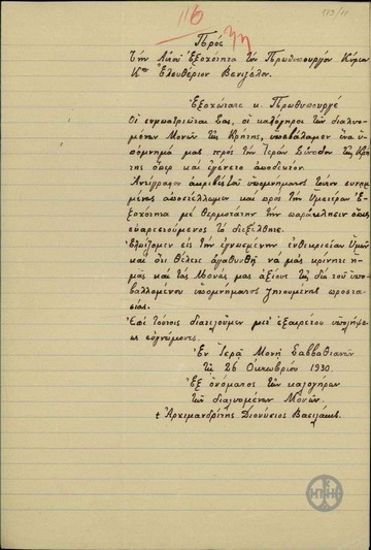 173/11
116
Πρὸς
Τὴν Αὐτοῦ Ἐξοχότητα τὸν Πρωθυπουργὸν Κύριον
Κον Ἐλευθέριον Βενιζέλον.
Ἐξοχώτατε κ. Πρωθυπουργέ
Οἱ συμπατριῶται Σας, οἱ καλόγηροι τῶν διαλυο-
μένων Μονῶν τῆς Κρήτης, ὑπεβάλαμεν ἕνα ὑ-
πόμνημά μας πρὸς τὴν Ἱερὰν Σύνοδον τῆς Κρή-
της ὅπερ καὶ ἐγένετο ἀποδεκτόν.
Ἀντίγραφον ἀκριβὲς τοῦ ὑπομνήματος τούτου
ἀποστέλλομεν καὶ πρὸς τὴν Ὑμετέραν Ἐξ-
οχότητα μὲ θερμοτάτην τὴν παράκλησιν ὅπως
εὐαρεστούμενος τὸ διεξέλθητε.
Ἐλπίζομεν εἰς τὴν ἐγνωσμένην Ὑμῶν
καὶ ὅτι θέλετε ἀγαθυνθῇ νὰ μᾶς κρίνητε ἡ-
μᾶς καὶ τὰς Μονάς μας ἀξίους τῆς διὰ τοῦ ὑπο-
βαλλομένου ὑπομνήματος ζητουμένης προστα-
σίας.
Ἐπὶ τούτοις διατελοῦμεν μετ' ἐξαιρέτου ὑπολήψε-
ως εὐγνώμονες.
Ἐν Ἱερᾷ Μονῇ Σαββαθιανῶν
τῇ 26 Ὀκτωβρίου 1930.
Ἐξ ὀνόματος τῶν καλογήρων
τῶν διαλυομένων Μονῶν.
† Ἀρχιμανδρίτης Διονύσιος Βασιλάκις